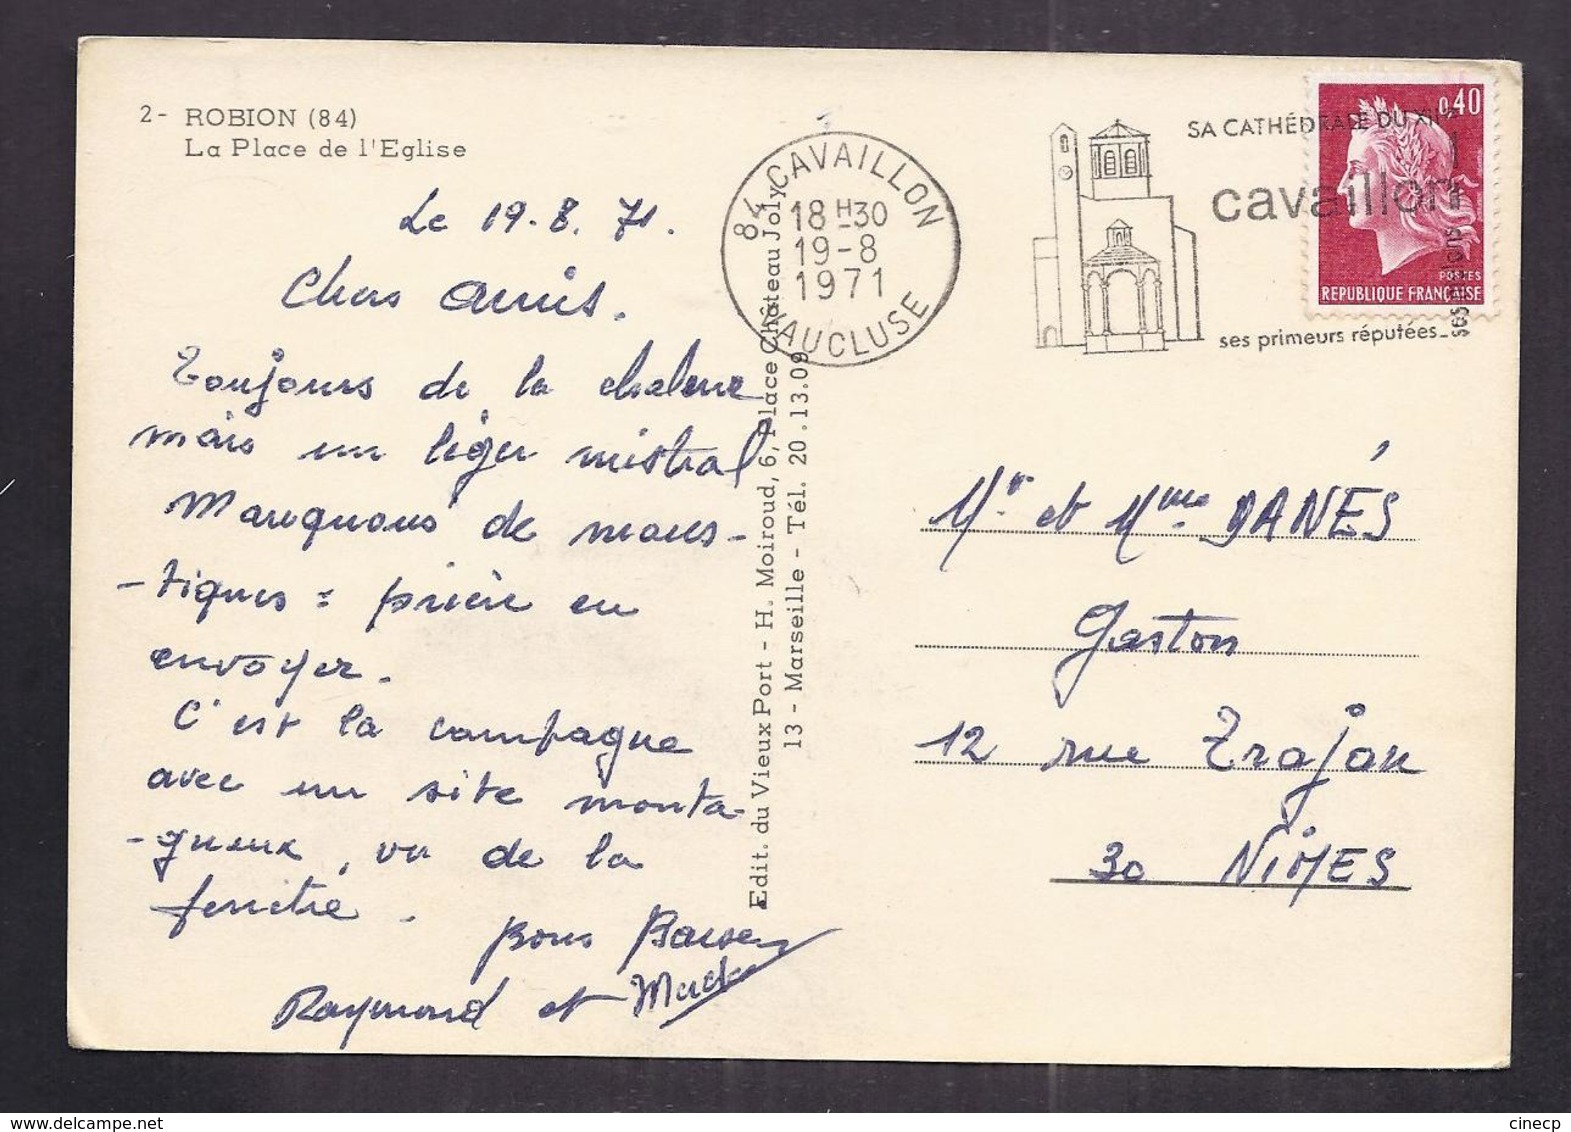 2- ROBION (84)
La Place de l'Eglise
Le 19.8.71.
Chers Amis.
Toujours de la chaleur
mais un léger mistral
Manquons de mous-
-tiques = prière en
envoyer.
C'est la campagne
avec un site monta-
-gneux, vu de la
fenêtre.
Bons Baisers
Raymond et
Edit. du Vieux Port - H. Moiroud, 6, Place Château Joly
13 - Marseille - Tél. 20.13.09
84 CAVAILLON
18H30
19-8
1971
VAUCLUSE
SA CATHÉDRALE DU XIIe
cavaillon
ses primeurs réputées_
ses melons
0,40
POSTES
REPUBLIQUE FRANÇAISE
Mr et Mme DANÉS
Gaston
12 rue Trajan
30 NIMES
cinecp